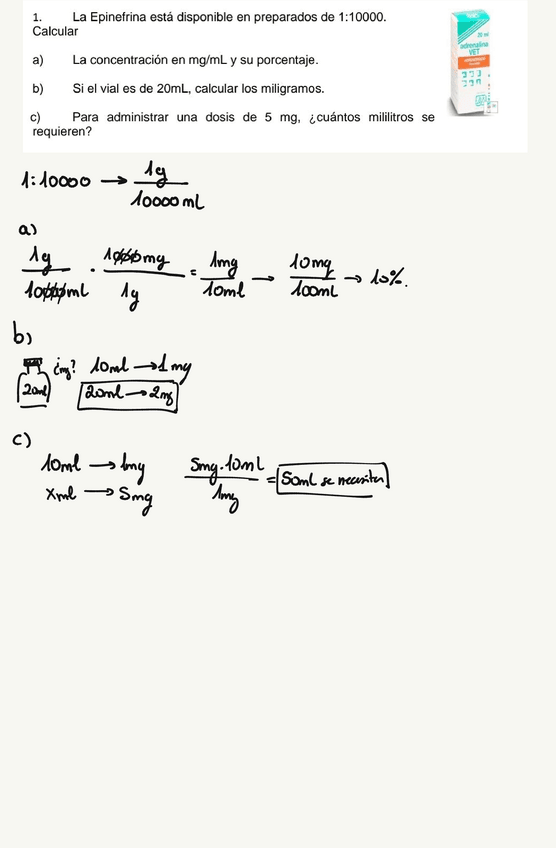 1. La Epinefrina está disponible en preparados de 1:10000.
Calcular
a) La concentración en mg/mL y su porcentaje.
b) Si el vial es de 20mL, calcular los miligramos.
c) Para administrar una dosis de 5 mg, ¿cuántos mililitros se
requieren?
20 ml
adrenalina
VET
1:10000 → 1g / 10000 mL
a)
1g / 10000ml · 1000mg / 1g = 1mg / 10ml → 10mg / 100mL → 10%.
b)
20ml ¿mg? 10ml → 1 mg
20ml → 2mg
c)
10ml → 1mg
xml → 5mg
5mg·10mL / 1mg = 50mL se necesitan